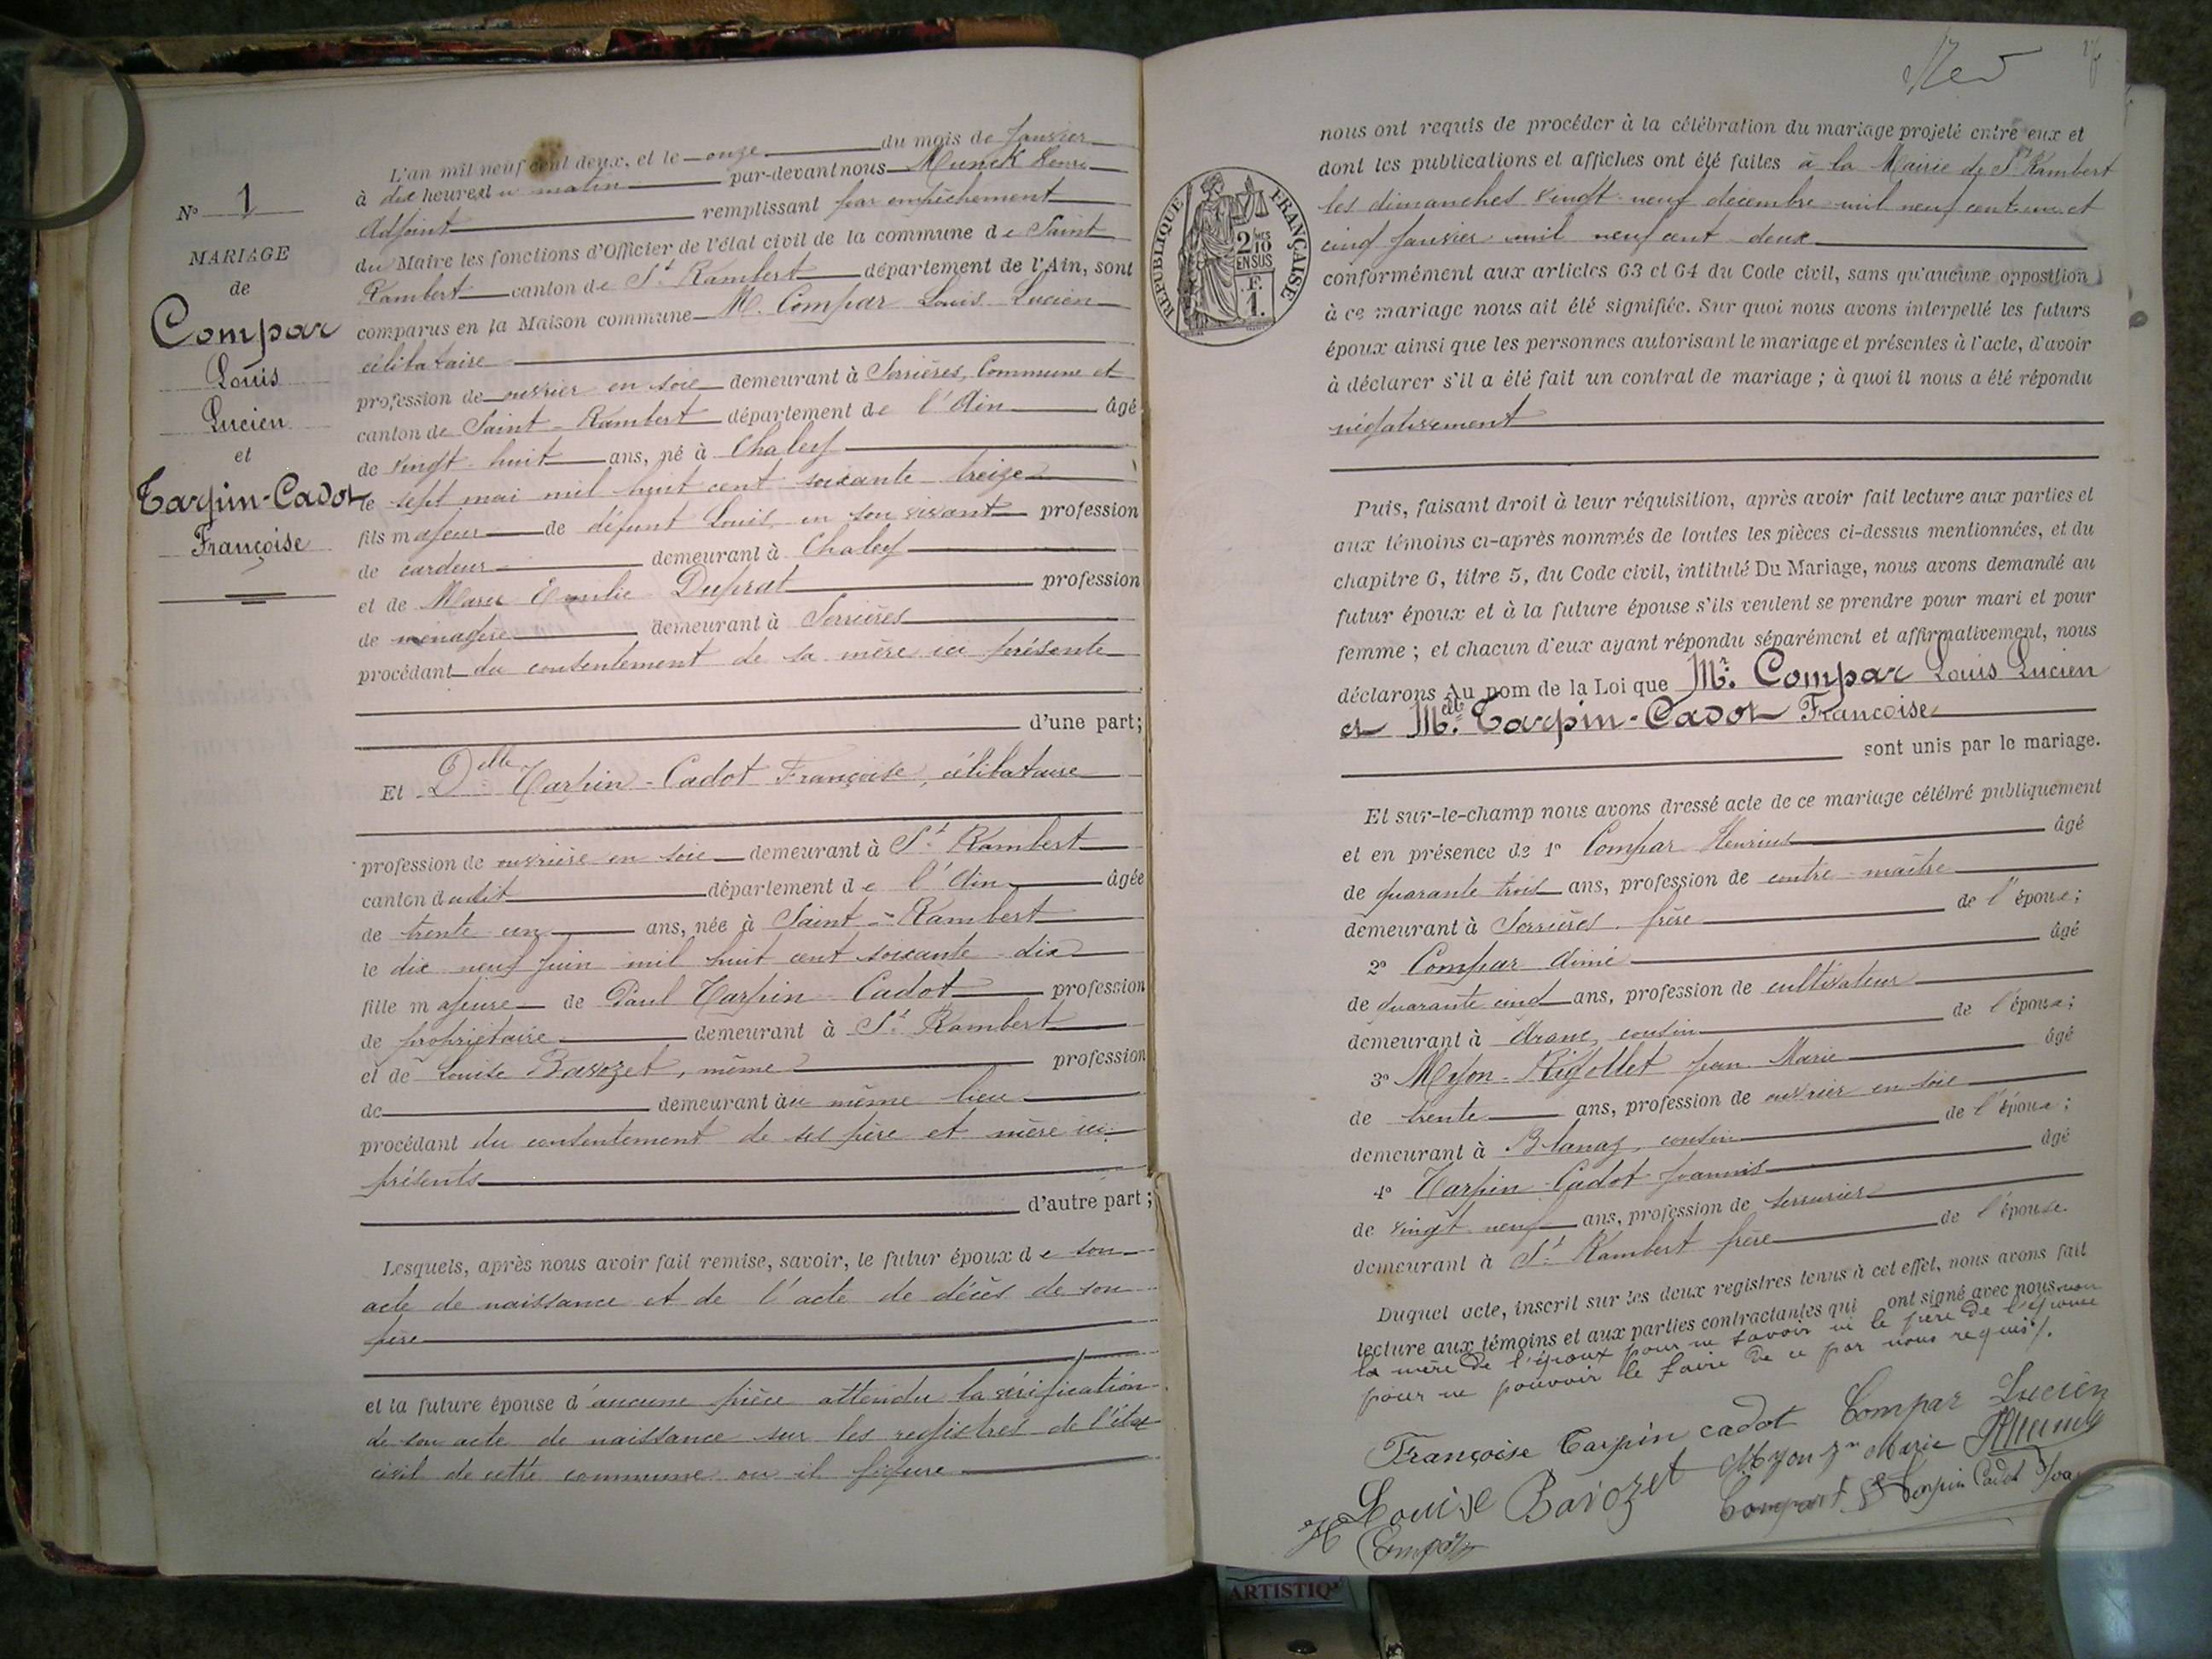 N° 1
MARIAGE
de
Compar
Louis
Lucien
et
Tarpin-Cadot
Françoise
L'an mil neuf cent deux, et le onze du mois de Janvier
à dix heures du matin par-devant nous Munck Henri
Adjoint remplissant par empêchement
du Maire les fonctions d'Officier de l'état civil de la commune de Saint
Rambert canton de St Rambert département de l'Ain, sont
comparus en la Maison commune M. Compar Louis Lucien
célibataire
profession de ouvrier en soie demeurant à Serrières, Commune et
canton de Saint-Rambert département de l'Ain âgé
de vingt-huit ans, né à Chaley
le sept mai mil huit cent soixante treize
fils majeur de défunt Louis, en son vivant profession
de cardeur demeurant à Chaley
et de Marie Emilie Duprat profession
de ménagère demeurant à Serrières
procédant du consentement de sa mère ici présente
d'une part;
Et Delle Tarpin-Cadot Françoise, célibataire
profession de ouvrière en soie demeurant à St Rambert
canton dudit département de l'Ain âgée
de trente un ans, née à Saint-Rambert
le dix neuf juin mil huit cent soixante-dix
fille majeure de Paul Tarpin-Cadot profession
de propriétaire demeurant à St Rambert
et de Louise Bavozet, même profession
de demeurant au même lieu
procédant du consentement de ses père et mère ici
présents
d'autre part;
Lesquels, après nous avoir fait remise, savoir, le futur époux de son
acte de naissance et de l'acte de décès de son
père
et la future épouse d'aucune pièce attendu la vérification
de son acte de naissance sur les registres de l'état
civil de cette commune ou il figure
RÉPUBLIQUE FRANÇAISE
2/10
EN SUS
F.
1.
nous ont requis de procéder à la célébration du mariage projeté entre eux et
dont les publications et affiches ont été faites à la Mairie de St Rambert
les dimanches vingt-neuf décembre mil neuf cent un et
cinq Janvier mil neuf cent deux
conformément aux articles 63 et 64 du Code civil, sans qu'aucune opposition
à ce mariage nous ait été signifiée. Sur quoi nous avons interpellé les futurs
époux ainsi que les personnes autorisant le mariage et présentes à l'acte, d'avoir
à déclarer s'il a été fait un contrat de mariage; à quoi il nous a été répondu
négativement
Puis, faisant droit à leur réquisition, après avoir fait lecture aux parties et
aux témoins ci-après nommés de toutes les pièces ci-dessus mentionnées, et du
chapitre 6, titre 5, du Code civil, intitulé Du Mariage, nous avons demandé au
futur époux et à la future épouse s'ils veulent se prendre pour mari et pour
femme; et chacun d'eux ayant répondu séparément et affirmativement, nous
déclarons Au nom de la Loi que Mr. Compar Louis Lucien
et Melle Tarpin-Cadot Françoise
sont unis par le mariage.
Et sur-le-champ nous avons dressé acte de ce mariage célébré publiquement
et en présence de 1° Compar Henrius âgé
de quarante trois ans, profession de contre-maître
demeurant à Serrières, frère de l'époux;
2° Compar Aimé âgé
de quarante cinq ans, profession de cultivateur
demeurant à Aranc, cousin de l'époux;
3° Myon-Rigollet Jean Marie âgé
de trente ans, profession de ouvrier en soie
demeurant à Blanaz, cousin de l'époux;
4° Tarpin-Cadot Joannis âgé
de vingt neuf ans, profession de serrurier
demeurant à St Rambert frère de l'épouse.
Duquel acte, inscrit sur les deux registres tenus à cet effet, nous avons fait
lecture aux témoins et aux parties contractantes qui ont signé avec nous non
la mère de l'époux pour ne savoir ni le père de l'épouse
pour ne pouvoir le faire de ce par nous requis.
Françoise Tarpin cadot Compar Lucien
Louise Bavozet Myon Jn Marie
Compart Tarpin Cadot